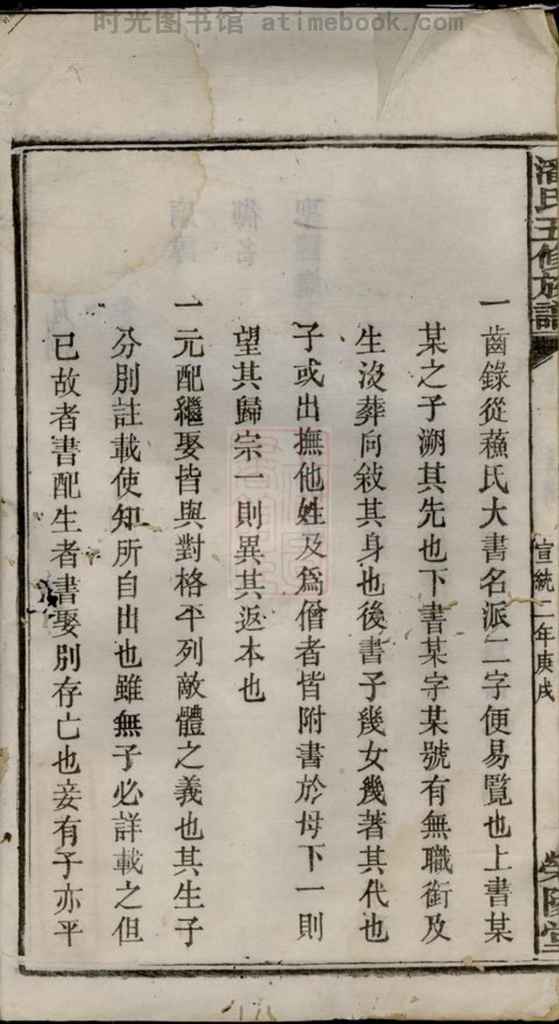 时光图书馆 atimebook.com
潘氏五修族譜
宣統二年庚戌
榮陽堂
一齒錄從蘓氏大書名派二字便易覽也上書某
某之子溯其先也下書某字某號有無職銜及
生沒葬向敍其身也後書子幾女幾著其代也
子或出撫他姓及爲僧者皆附書於母下一則
望其歸宗一則異其返本也
一元配繼娶皆與對格平列敵體之義也其生子
分別註載使知所自出也雖無子必詳載之但
已故者書配生者書娶別存亡也妾有子亦平